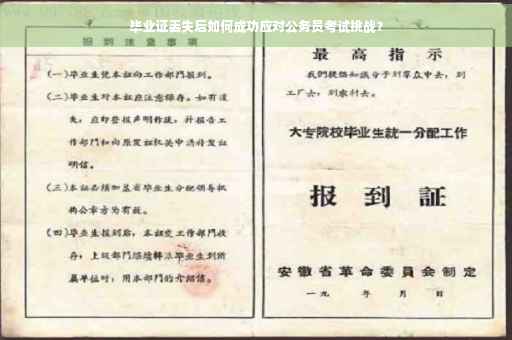 毕业证丢失后如何成功应对公务员考试挑战?
报到注意事项
(一)毕业生凭本证向工作部门报到。
(二)毕业生对本证应注意保存。如有遗
失,应即登报声明作废,并报告工
作部门和向原发证机关申请补发证
明信。
(三)本证必须加盖省毕业生分配领导机
构公章方为有效。
(四)毕业生报到后,本证交工作部门收
存;上级部门继续转派毕业生到所
属单位时,用本部门的介绍信。
最高指示
我们提倡知识分子到群众中去,到
工厂去,到农村去。
大专院校毕业生统一分配工作
报到证
安徽省革命委员会制定
一九 年 月 日